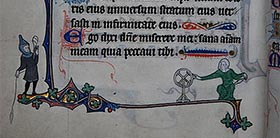 eius uniuersum stratum eius uer
sasti in infirmitate eius
Ego dixi dñe miserere mei: sana aīam
meam quia peccaui tibi.